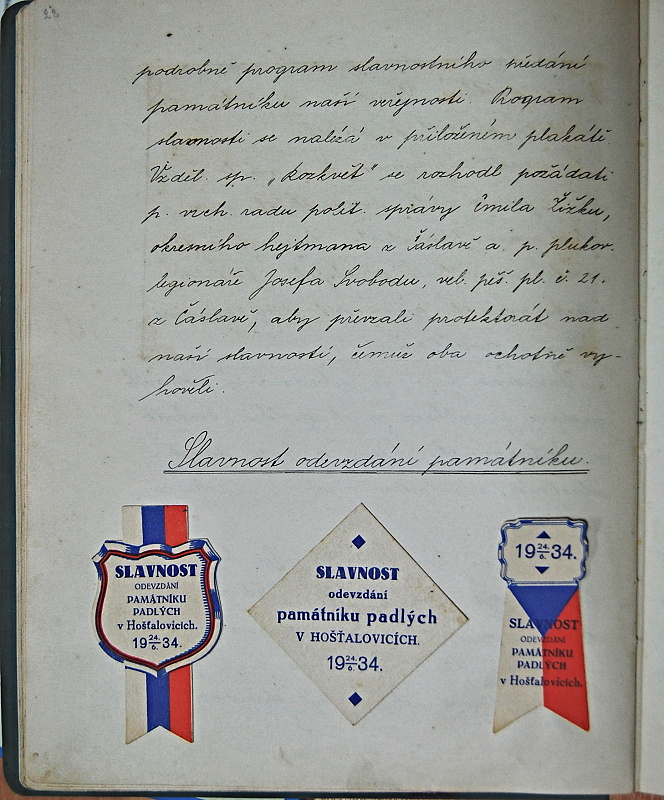 podrobně program slavnostního předání
památníku naší veřejnosti. Program
slavnosti se nalézá v přiloženém plakátě.
Vzděl. sp. „Rozkvět" se rozhodl požádati
p. vrch. radu polit. správy Emila Žižku,
okresního hejtmana z Čáslavě a p. plukov.
legionáře Josefa Svobodu, vel. pěš. pl. č. 21.
z Čáslavě, aby převzali protektorát nad
naší slavností, čemuž oba ochotně vy-
hověli.
Slavnost odevzdání památníku.
SLAVNOST
ODEVZDÁNÍ
PAMÁTNÍKU
PADLÝCH
v Hošťalovicích.
19 24./6. 34.
SLAVNOST
odevzdání
památníku padlých
V HOŠŤALOVICÍCH.
19 24./6. 34.
19 24./6. 34.
SLAVNOST
ODEVZDÁNÍ
PAMÁTNÍKU
PADLÝCH
v Hošťalovicích.